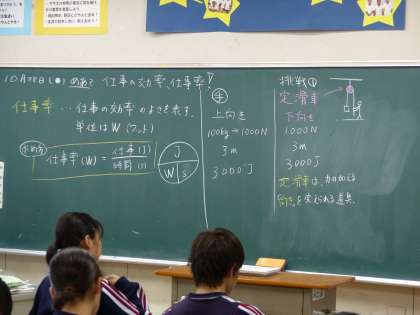 10月28日(木) めあて 仕事の効率、仕事率!
仕事率 … 仕事の効率のよさを表す。
単位はW(ワット)
求め方
仕事率(W) = 仕事(J) / 時間(s)
J
W s
上向き
100kg→1000N
3m
3000J
挑戦①
定滑車
下向き
1000N
3m
3000J
定滑車は、力の加える
向きを変えられる道具。